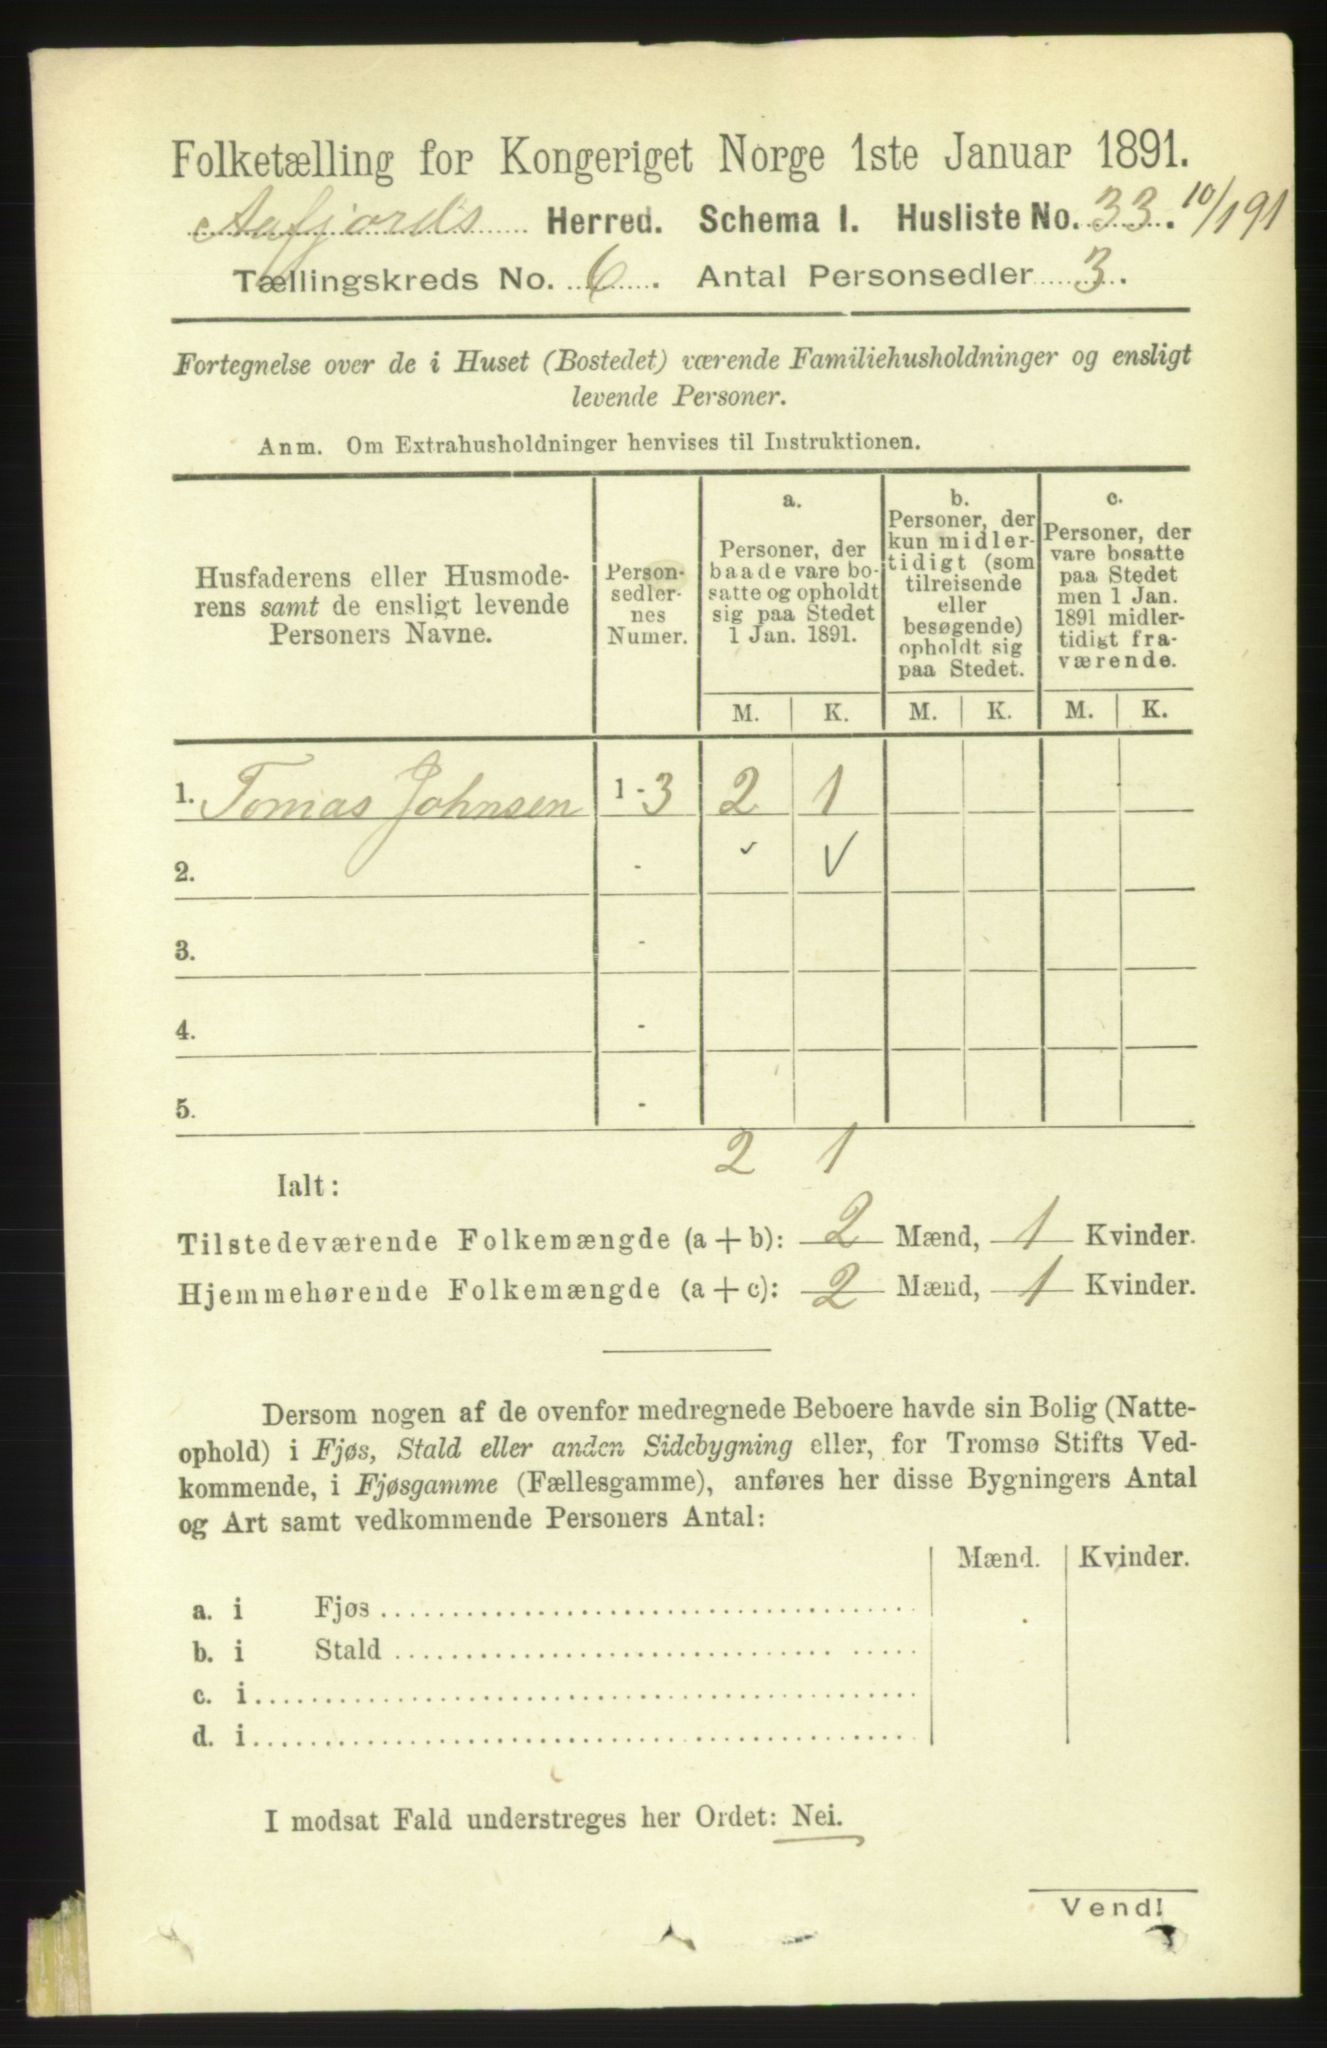 Folketælling for Kongeriget Norge 1ste Januar 1891.
Aafjords Herred. Schema I. Husliste No. 33. 10/191
Tællingskreds No. 6. Antal Personsedler 3.
Fortegnelse over de i Huset (Bostedet) værende Familiehusholdninger og ensligt
levende Personer.
Anm. Om Extrahusholdninger henvises til Instruktionen.
Husfaderens eller Husmode-
rens samt de ensligt levende
Personers Navne.
Person-
sedler-
nes
Numer.
a.
Personer, der
baade vare bo-
satte og opholdt
sig paa Stedet
1 Jan. 1891.
b.
Personer, der
kun midler-
tidigt (som
tilreisende
eller
besøgende)
opholdt sig
paa Stedet.
c.
Personer, der
vare bosatte
paa Stedet
men 1 Jan.
1891 midler-
tidigt fra-
værende.
M. K. M. K. M. K.
1. Tomas Johnsen 1 - 3 2 1
2. - ✓ ✓
3. -
4. -
5. -
2 1
Ialt:
Tilstedeværende Folkemængde (a + b): 2 Mænd, 1 Kvinder.
Hjemmehørende Folkemængde (a + c): 2 Mænd, 1 Kvinder.
Dersom nogen af de ovenfor medregnede Beboere havde sin Bolig (Natte-
ophold) i Fjøs, Stald eller anden Sidebygning eller, for Tromsø Stifts Ved-
kommende, i Fjøsgamme (Fællesgamme), anføres her disse Bygningers Antal
og Art samt vedkommende Personers Antal:
Mænd. Kvinder.
a. i Fjøs
b. i Stald
c. i
d. i
I modsat Fald understreges her Ordet: Nei.
Vend!